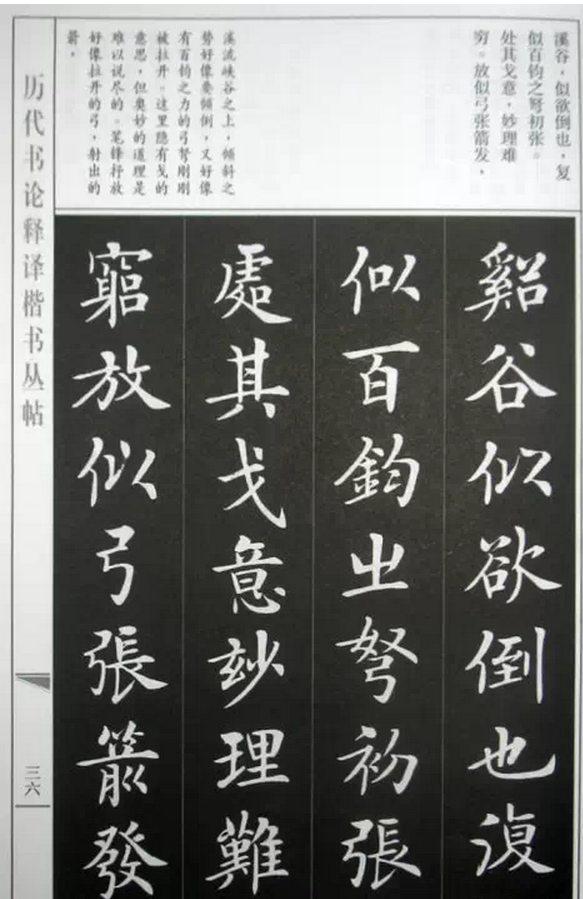 溪谷，似欲倒也，复
似百钧之弩初张。
处其戈意，妙理难
穷。放似弓张箭发，
溪流峡谷之上，倾斜之
势好像要倾倒，又好像
有百钧之力的弓弩刚刚
被拉开。这里隐有戈的
意思，但奥妙的道理是
难以说尽的。笔锋抒放
好像拉开的弓，射出的
箭。
谿谷似欲倒也復
似百鈞之弩初張
處其戈意玅理難
窮放似弓張箭發
历代书论释译楷书丛帖
三六